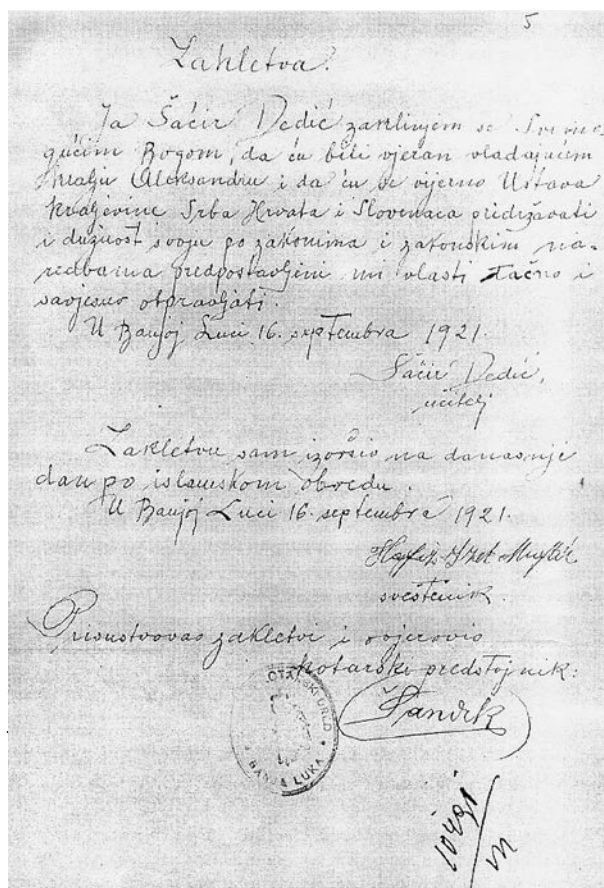 5
Zakletva.
Ja Šaćir Dedić zaklinjem se Svemo
gućim Bogom, da ću biti vjeran vladajućem
kralju Aleksandru i da ću se vijerno Ustava
kraljevine Srba Hrvata i Slovenaca pridržavati
i dužnost svoju po zakonima i zakonskim na-
redbama predpostavljeni mi vlasti tačno i
savjesno otpravljati.
U Banjoj Luci 16. septembra 1921.
Šaćir Dedić,
učitelj
Zakletvu sam izvršio na današnje
dan po islamskom obredu
U Banjoj Luci 16. septembra 1921.
Hafiz Izet
sveštenik
Prisustvovao zakletvi i ovjerovio
kotarski predstojnik:
OTARSKI URED
BANJA LUKA